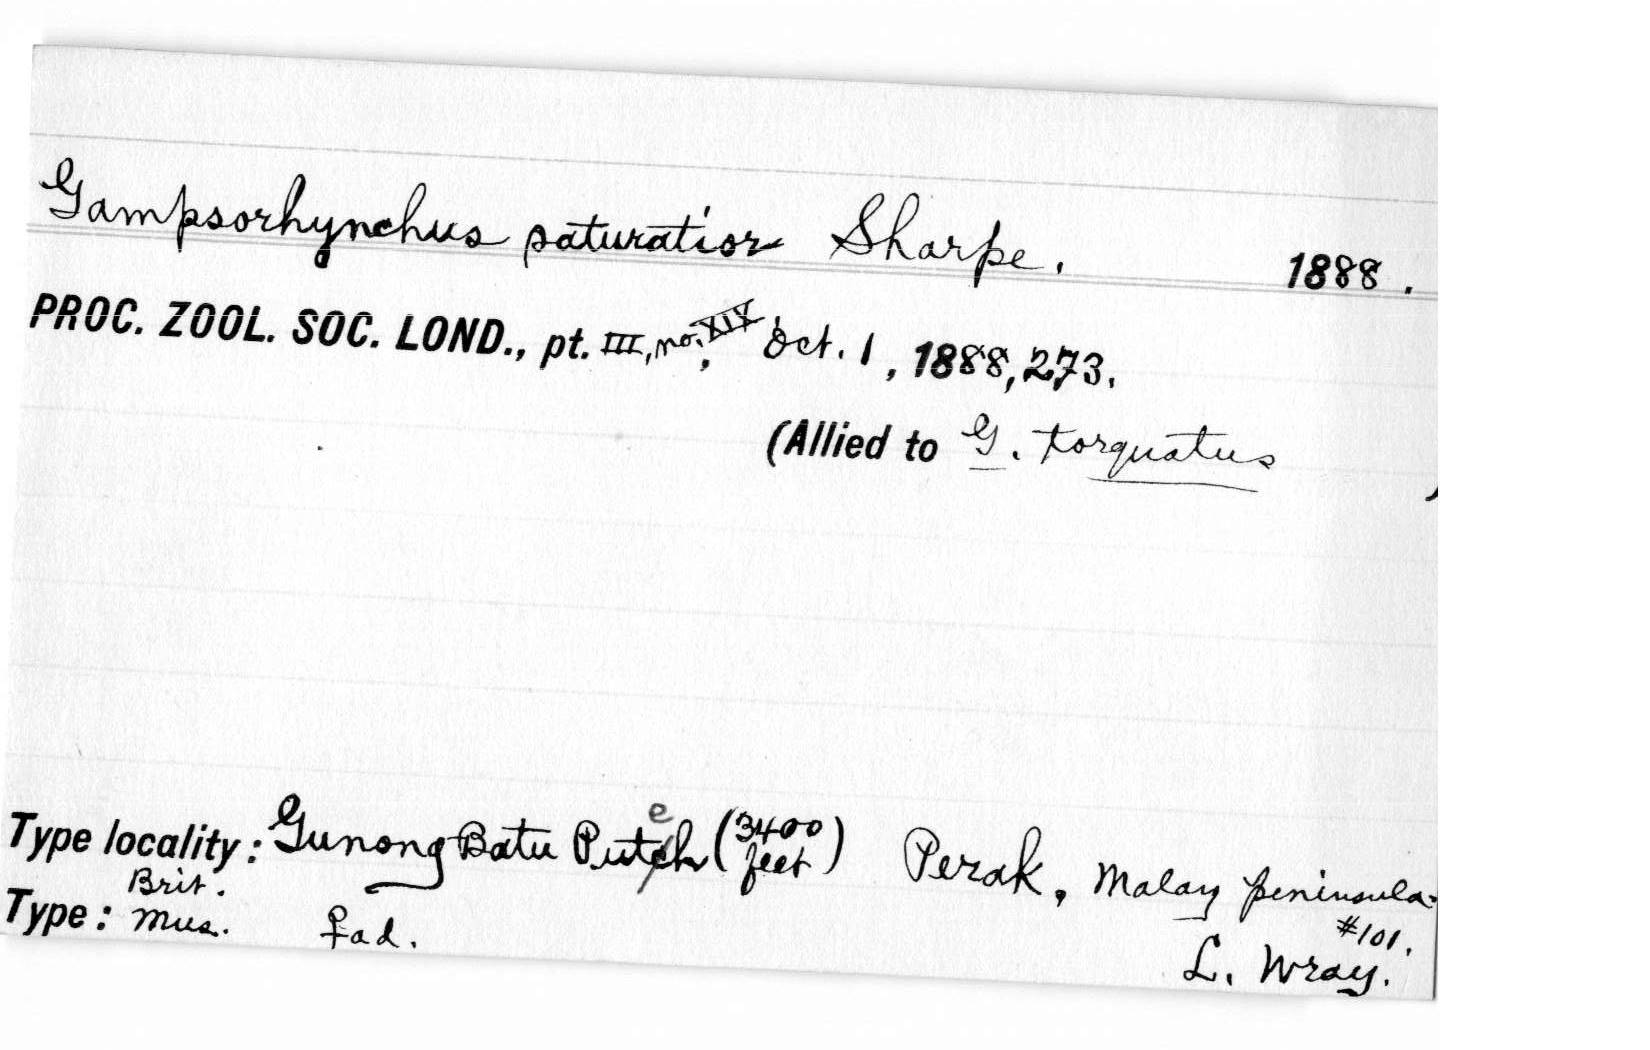 Gampsorhynchus saturatior Sharpe. 1888.
PROC. ZOOL. SOC. LOND., pt. III, no. XIX, Oct. 1, 1888, 273.
(Allied to G. torquatus )
Type locality: Gunong Batu Puteh (3400 feet) Perak, Malay peninsula.
Type: Brit. Mus. ♀ad. #101.
L. Wray.